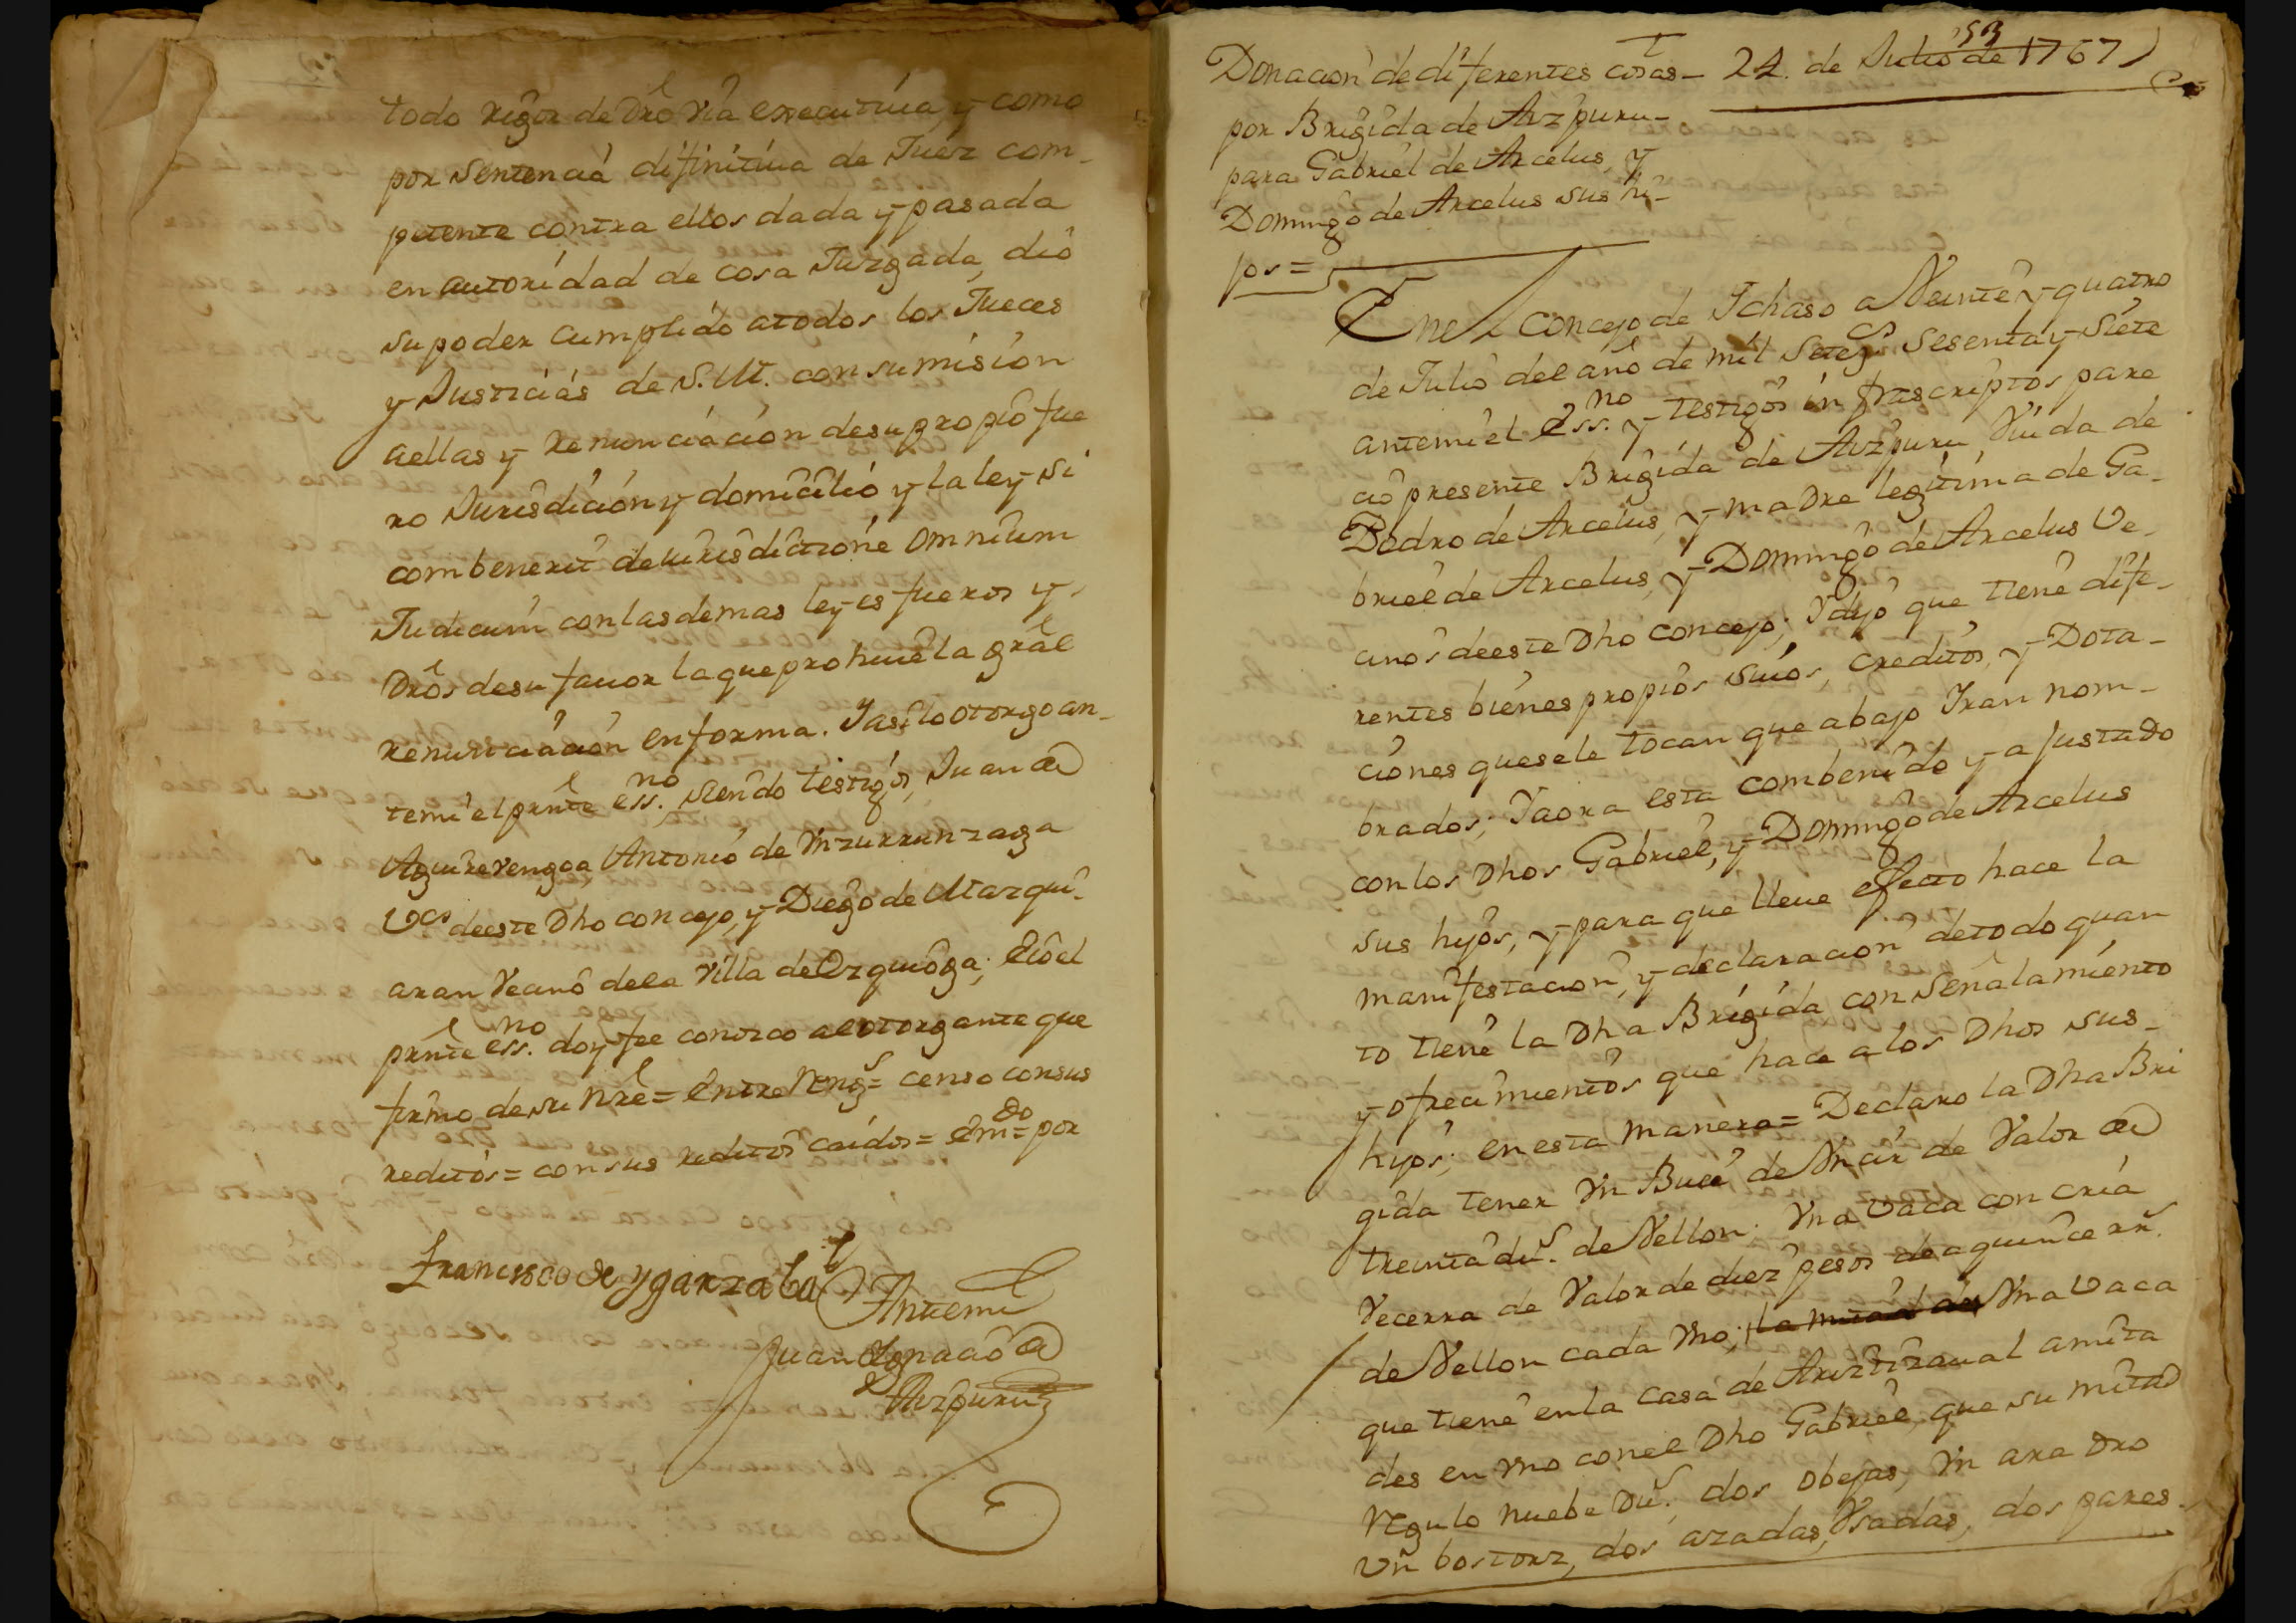 todo rigor de dro via executiua, y como
por Sentencia difinitiua de Juez com-
petente contra ellos dada y pasada
en autoridad de cosa Juzgada, dio
su poder cumplido atodos los Jueces
y Justicias de S. M. con sumision
aellas y renunciacion desu propio fue
ro Jurisdicion y domicilio y la ley si
combenerit de iurisdictione omnium
Judicum con las demas leyes fueros y
dros desu fauor la que prohiue la gral
renunciacion enforma. Yasi lo otorgo an-
temi el prnte ess.no siendo testigos, Juan de
Aguirrerengoa Antonio de Ynzurrunzaga
Vcs deeste dho concejo, y Diego de Mazqui-
aran Vecino dela Villa de Ezquioga; E io el
prnte ess.no doy fee conozco al otorgante que
firmo de su nre = Entre Reng.s = censo con sus
reditos = con sus reditos caidos = Em.do = por
Francisco de ygarzabal
Antemi
Juan Ignacio de
Aizpuru
53
Donacion de diferentes cosas - 24. de Julio de 1767
por Brigida de Aizpuru-
para Gabriel de Arcelus, y
Domingo de Arcelus sus hi-
jos =
Enel concejo de Ichaso a Veinte y quatro
de Julio del año de mil Seteçs Sesenta y Siete
antemi el Ess.no y testigos infrascriptos pare
cio presente Brigida de Aizpuru Viuda de
Pedro de Arcelus, y madre legitima de Ga-
briel de Arcelus, y Domingo de Arcelus Ve-
cinos deeste dho concejo; Ydijo que tiene dife-
rentes bienes propios suios, creditos, y Dota-
ciones quesele tocan que abajo Iran nom-
brados; Yaora esta combenido y ajustado
con los dhos Gabriel, y Domingo de Arcelus
sus hijos, y para que lleue efecto hace la
manifestacion, y declaracion detodo quan
to tiene la dha Brigida con Señalamiento
y ofrecimientos que hace a los dhos sus-
hijos; en esta manera = Declaro la dha Bri
gida tener Vn Buei de Vncir de Valor de
treinta du.s de Vellon; Vna Vaca con cria
Vecerra de Valor de diez pesos de aquince rs.
de Vellon cada Vno; la mitad de Vna Vaca
que tiene en la casa de Ariztizaual amita
des en Vno con el dho Gabriel, que su mitad
Regulo nuebe du.s, dos obejas, Vn aradro
Vn bostorz, dos azadas, Vsadas, dos pares